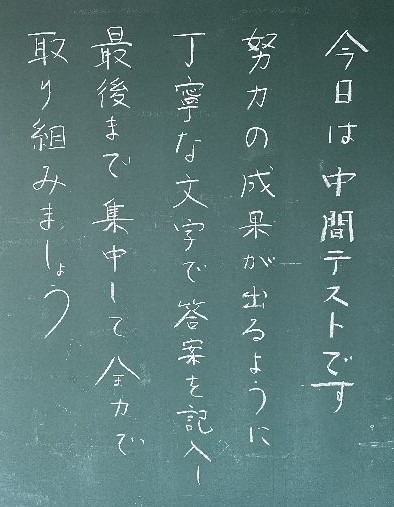 今日は中間テストです
努力の成果が出るように
丁寧な文字で答案を記入し
最後まで集中して全力で
取り組みましょう